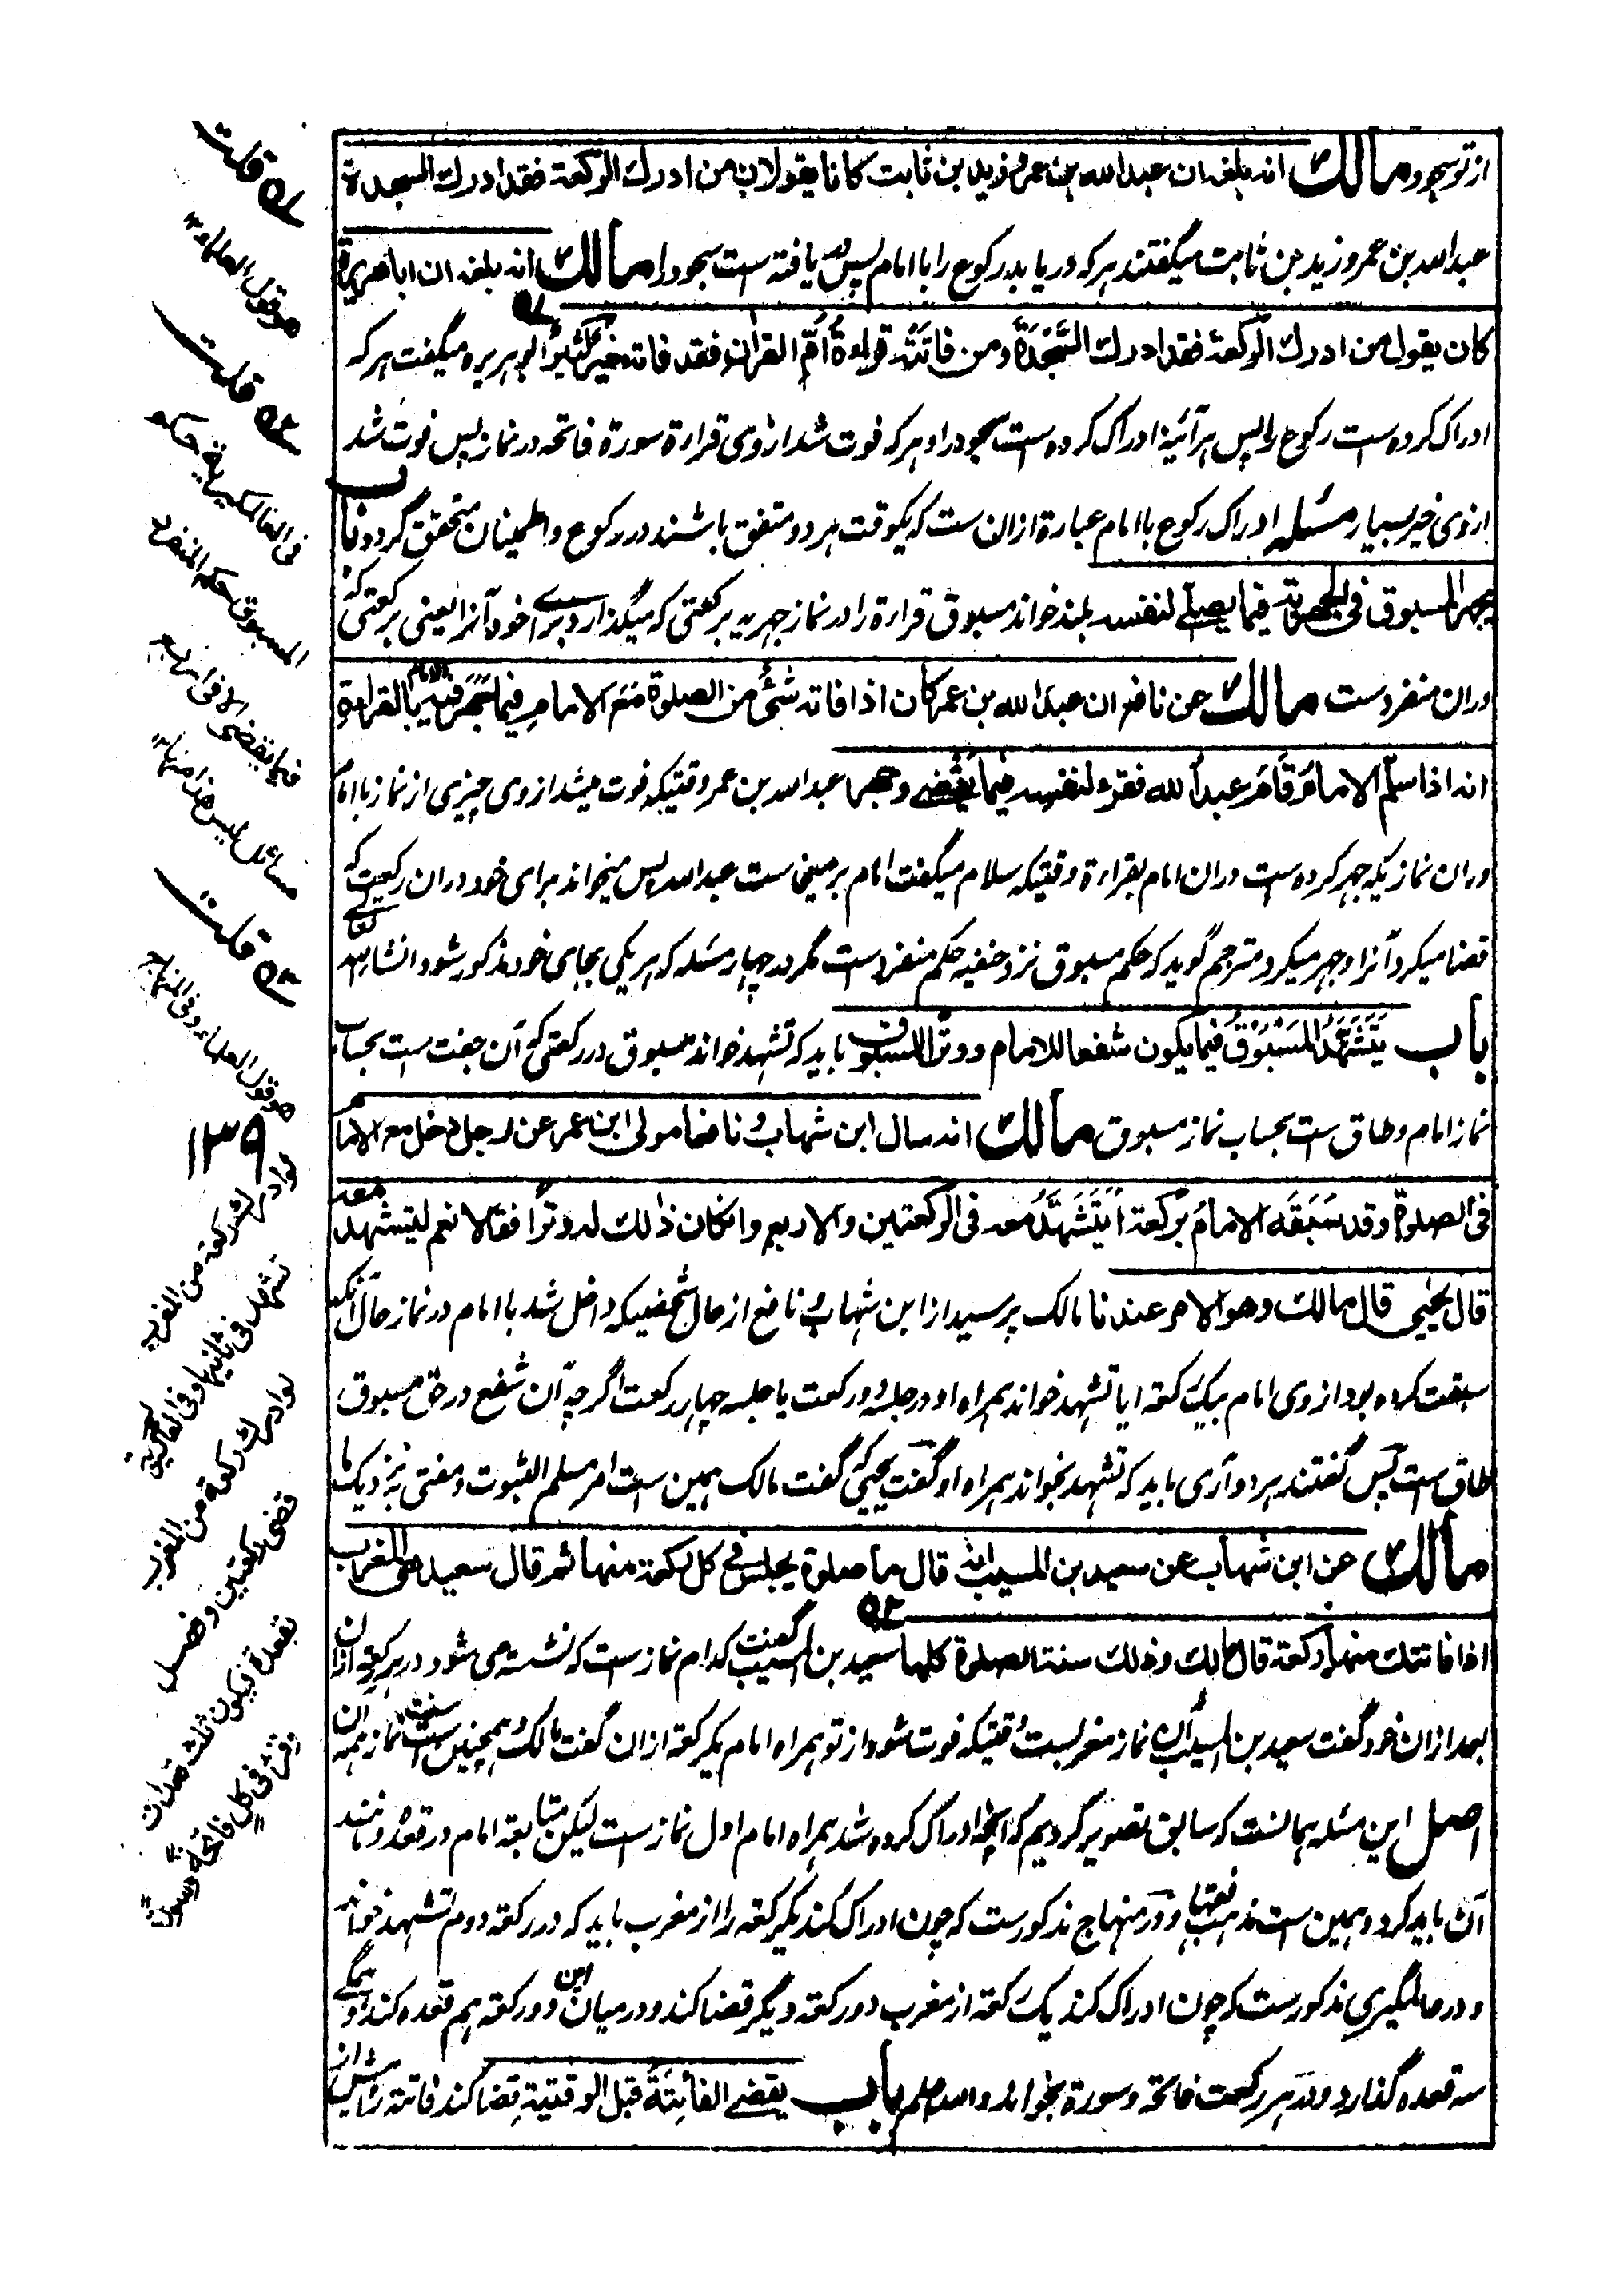 از تو سجود مالك انه بلغه ان عبد الله بن عمر و زيد بن ثابت كانا يقولان من ادرك الركعة فقد ادرك السجدة
عبد الله بن عمر و زيد بن ثابت میگفتند هر که دریابد رکوع را با امام پس یافته ست سجود را مالك انه بلغه ان ابا هريرة
كان يقول من ادرك الركعة فقد ادرك السَّجْدَةَ ومن فاتَتْه قراءةُ اُمِّ القرانِ فقد فاته خيرٌ كثيرٌ ابو هریره میگفت هر که
ادراک کرده ست رکوع را پس هر آئینه ادراک کرده ست سجود را و هر که فوت شد از وی قراءة سورة فاتحه در نماز پس فوت شد
از وی خیر بسیار مسئله ادراک رکوع با امام عبارة ازان ست که یکوقت هر دو متفق باشند در رکوع و اطمینان متحقق گردد باب
يجهر المسبوق فى الجهرية فيما يصلے لنفسه بلند خواند مسبوق قراءة را در نماز جهریه بر کعتی که میگذارد برای خود آنرا یعنی بر کعتی که
دران منفرد ست مالك عن نافع ان عبد الله بن عمر كان اذا فاته شئ من الصلوة مَعَ الامامِ فيما جَهَرَ فيه الامام بالقراءة
انه اذا سلم الامام قام عبد الله فقرء لنفسه فيما يَقْضے وجهر عبد الله بن عمر وقتیکه فوت میشد از وی چیزی از نماز با امام
دران نماز یکه جهر کرده ست دران امام بقراءة وقتیکه سلام میگفت امام بر میخاست عبد الله پس میخواند برای خود دران رکعتے که
قضا میکرد آنرا و جهر میکرد مترجم گوید که حکم مسبوق نزد حنفیه حکم منفرد ست مگر در چهار مسئله که هر یکی بجای خود مذکور شود انشاء الله تعالے
باب يَتَشَهَّدُ المَسْبُوقُ فيما يكون شفعا للامام و وترا للمسبوق باید که تشهد خواند مسبوق در رکعتی که آن جفت ست بحساب
نماز امام و طاق ست بحساب نماز مسبوق مالك انه سال ابن شهاب و نافعا مولى ابن عمر عن رجل دخل مع الامام
فى الصلوة وقد سَبَقَه الامامُ بركعة اَيَتَشَهَّدُ معه فى الركعتين والاربع وان كان ذالك له وترًا فقالا نعم ليتشهد معه
قال يحيى قال مالك وهو الامر عندنا مالک پرسید از ابن شهاب و نافع از حال شخصیکه داخل شد با امام در نماز حال آنکه
سبقت کرده بود از وی امام بیک رکعة ایا تشهد خواند همراه او در جلسه دو رکعت یا جلسه چهار رکعت اگر چه آن شفع در حق مسبوق
طاق ست پس گفتند هر دو آری باید که تشهد بخواند همراه او گفت یحیی که گفت مالک همین ست امر مسلم الثبوت و مفتی به نزدیک ما
مالك عن ابن شهاب عن سعيد بن المسيب انه قال ما صلوة يجلس فى كل ركعة منها ثم قال سعيد هى المغرب
اذا فاتتك منها ركعة قال مالك وذلك سنة الصلوة كلها سعید بن المسیب گفت کدام نماز ست که نشسته می شود در هر رکعة ازان
بعد ازان خود گفت سعید بن المسیب آن نماز مغرب ست وقتیکه فوت شود از تو همراه امام یکرکعة ازان گفت مالک و همچنین ست سنت نماز همه آن
اصل این مسئله همانست که سابق تصویر کردیم که آنچه ادراک کرده شد همراه امام اول نماز ست لیکن متابعة امام در قعده و مانند
آن باید کرد و همین ست مذهب فقها و در منهاج مذکور ست که چون ادراک کند یکرکعة را از مغرب باید که در رکعة دوم تشهد خواند
و در عالمگیری مذکور ست که چون ادراک کند یک رکعة از مغرب دو رکعة دیگر قضا کند و درمیان این دو رکعة هم قعده کند
سه قعده گذارد و در هر رکعت فاتحة و سورة بخواند و الله اعلم باب يقضے الفائِتَةَ قبل الوقتية قضا کند فائتة را پیش از
۵۱ قلت
هو قول العلماء ۱۲
۵۲ قلت
فى العالمكيرية حكم
المسبوق حكم المنفرد
فيما يقضى الا فى اربع
مسائل ليس هذا منها ۱۲
۵۳ قلت
هو قول العلماء وفى المنهاج
۱۳۹
لو ادرك ركعة من المغرب
تشهد فى ثانيتها وفى العالمكيرية
لو ادرك ركعة من المغرب
قضى ركعتين وفصل
بقعدة فيكون ثلث قعدات
وقرء فى كل فاتحة وسورة